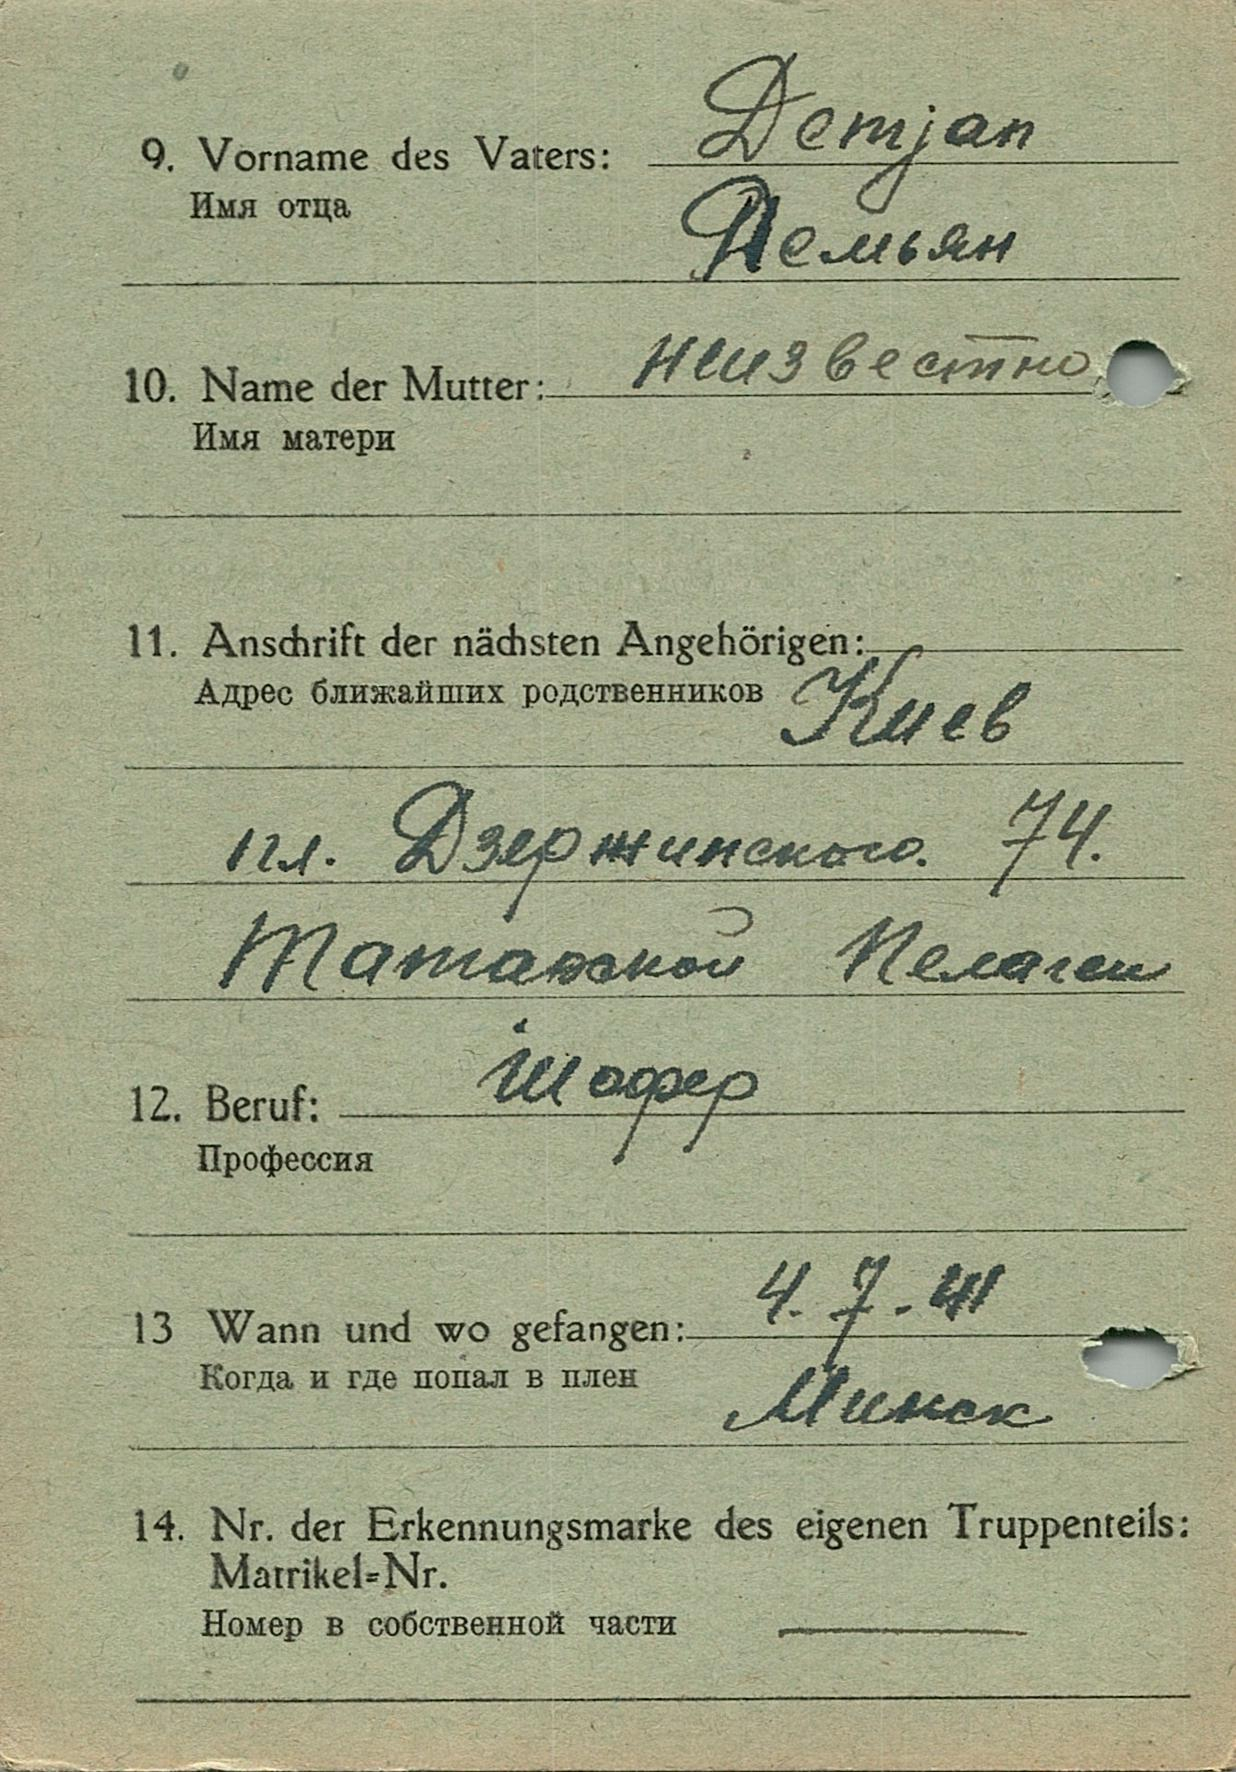 Demjan
9. Vorname des Vaters:
Имя отца
Демьян
10. Name der Mutter: неизвестно
Имя матери
11. Anschrift der nächsten Angehörigen:
Адрес ближайших родственников Киев
пл. Дзержинского. 74.
Пелагеи
12. Beruf: шофер
Профессия
13 Wann und wo gefangen: 4.7.41
Когда и где попал в плен
Минск
14. Nr. der Erkennungsmarke des eigenen Truppenteils:
Matrikel=Nr.
Номер в собственной части